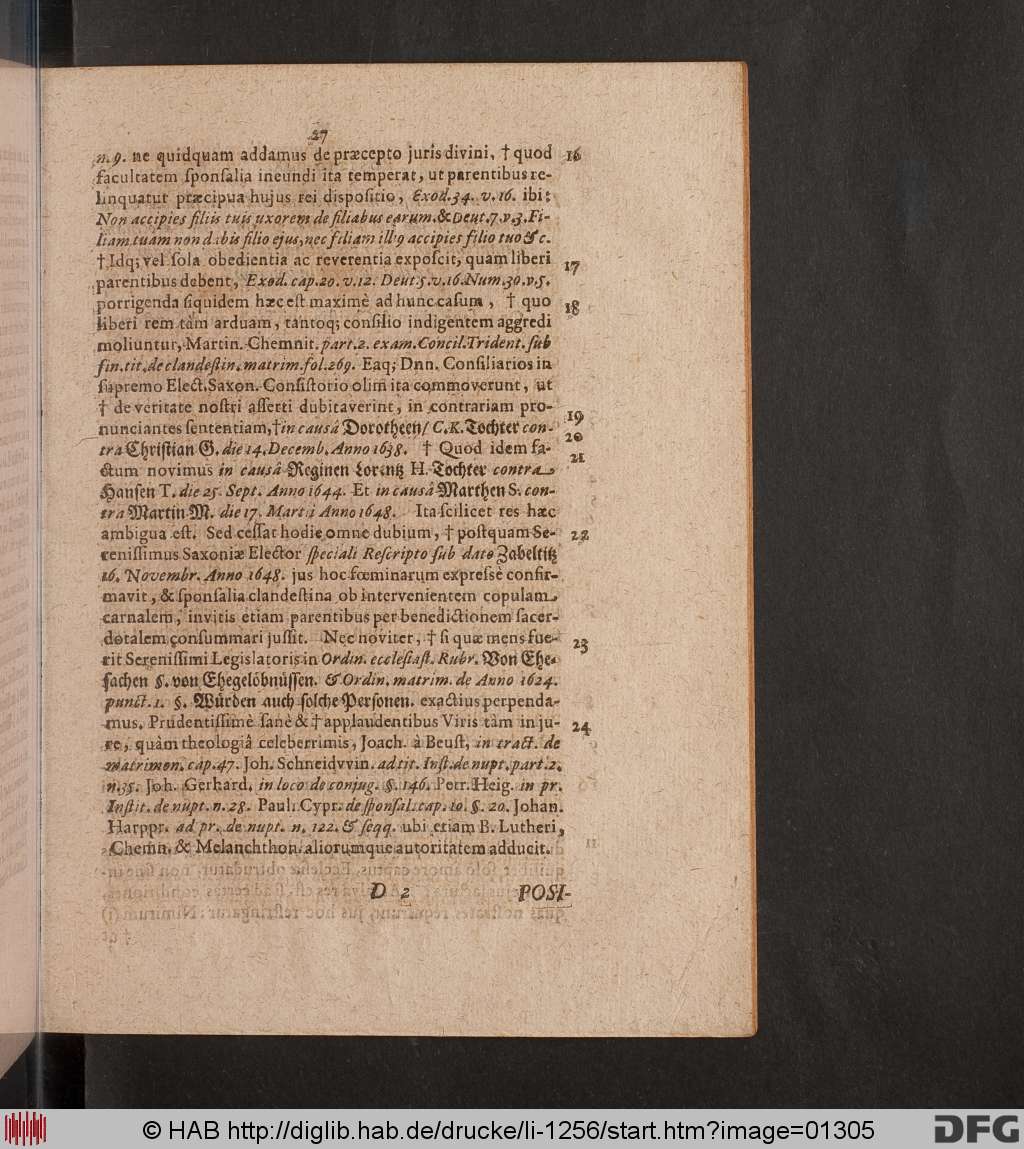 27
n. 9. ne quidquam addamus de præcepto juris divini, † quod 16
facultatem ſponſalia ineundi ita temperat, ut parentibus re-
linquatur præcipua hujus rei diſpoſitio, Exod. 34. v. 16. ibi:
Non accipies filiis tuis uxorem de filiabus earum. & Deut. 7. v. 3. Fi-
liam tuam non dabis filio ejus, nec filiam illi9 accipies filio tuo & c.
† Idq; vel ſola obedientia ac reverentia expoſcit, quam liberi 17
parentibus debent, Exod. cap. 20. v. 12. Deut. 5. v. 16. Num. 30. v. 5.
porrigenda ſiquidem hæc eſt maximè ad hunc caſum, † quo 18
liberi rem tàm arduam, tantoq; conſilio indigentem aggredi
moliuntur, Martin. Chemnit. part. 2. exam. Concil. Trident. ſub
fin. tit. de clandeſtin. matrim. fol. 269. Eaq; Dnn. Conſiliarios in
ſupremo Elect. Saxon. Conſiſtorio olim ita commoverunt, ut
† de veritate noſtri aſſerti dubitaverint, in contrariam pro- 19
nunciantes ſententiam, † in causâ Dorotheen/ C. K. Tochter con- 20
tra Chriſtian G. die 14. Decemb. Anno 1638. † Quod idem fa- 21
ctum novimus in causâ Reginen Lorentz H. Tochter contra
Hanſen T. die 25. Sept. Anno 1644. Et in causâ Marthen S. con-
tra Martin M. die 17. Martii Anno 1648. Ita ſcilicet res hæc
ambigua eſt. Sed ceſſat hodie omne dubium, † poſtquam Se- 22
reniſſimus Saxoniæ Elector ſpeciali Reſcripto ſub dato Zabeltitz
16. Novembr. Anno 1648. jus hoc fœminarum expreſſè confir-
mavit, & ſponſalia clandeſtina ob intervenientem copulam
carnalem, invitis etiam parentibus per benedictionem ſacer-
dotalem conſummari juſſit. Nec noviter, † ſi quæ mens fue- 23
rit Sereniſſimi Legislatoris in Ordin. eccleſiaſt. Rubr. Von Ehe-
ſachen §. von Ehegelöbnüſſen. & Ordin. matrim. de Anno 1624.
punct. 1. §. Würden auch ſolche Perſonen. exactius perpenda-
mus. Prudentiſſimè ſanè & † applaudentibus Viris tàm in ju- 24
re, quàm theologiâ celeberrimis, Joach. à Beuſt, in tract. de
matrimon. cap. 47. Joh. Schneidvvin. ad tit. Inſt. de nupt. part. 2.
n. 35. Joh. Gerhard. in loco de conjug. §. 146. Petr. Heig. in pr.
Inſtit. de nupt. n. 28. Paul. Cypr. de ſponſal. cap. 10. §. 20. Johan.
Harppr. ad pr. de nupt. n. 122. & ſeqq. ubi etiam B. Lutheri,
Chemn. & Melanchthon. aliorumque autoritatem adducit.
D 2 POSI-
© HAB http://diglib.hab.de/drucke/li-1256/start.htm?image=01305
DFG